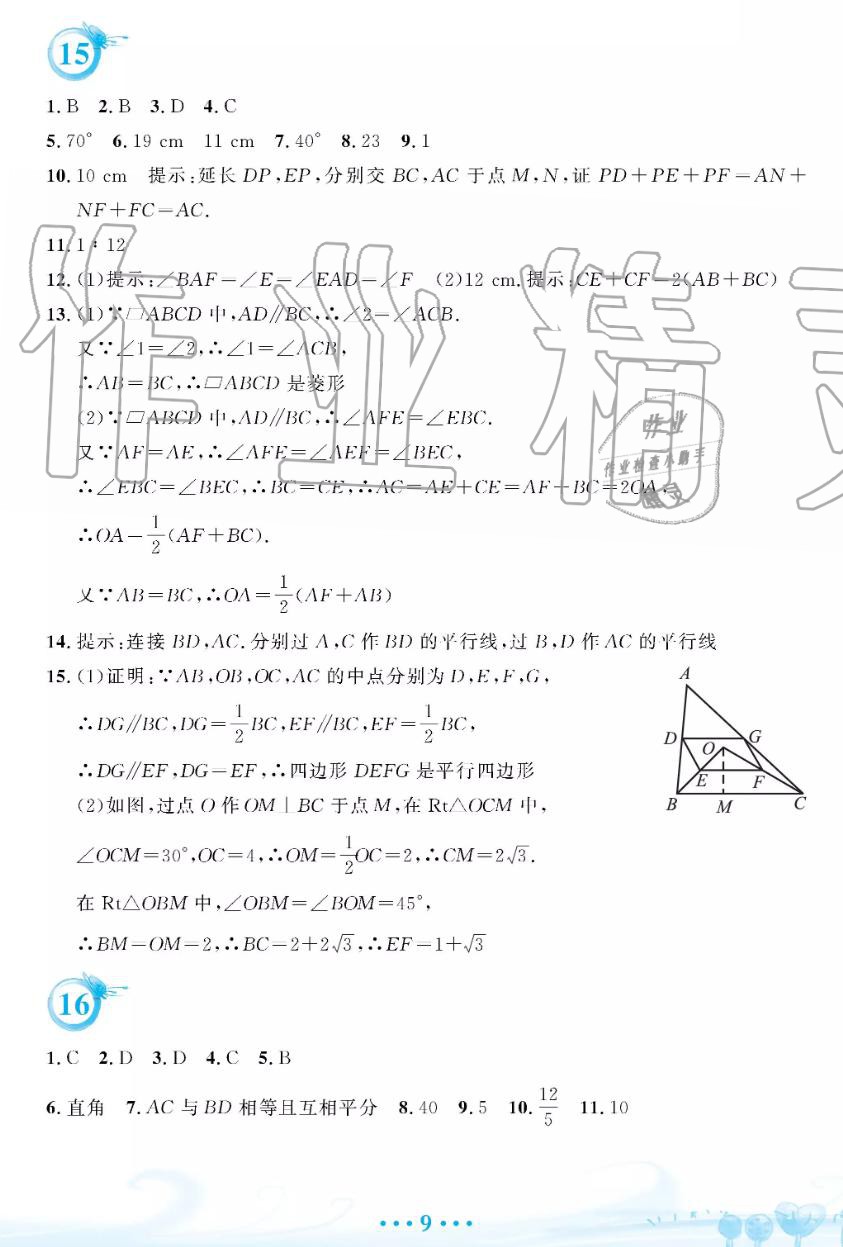 15
1. B  2. B  3. D  4. C
5. 70°  6. 19 cm  11 cm  7. 40°  8. 23  9. 1
10. 10 cm  提示:延长 DP,EP,分别交 BC,AC 于点 M,N,证 PD+PE+PF=AN+
NF+FC=AC.
11. 1∶12
12. (1)提示:∠BAF=∠E=∠EAD=∠F  (2)12 cm.提示:CE+CF=2(AB+BC)
13. (1)∵▱ABCD 中,AD∥BC,∴∠2=∠ACB.
又∵∠1=∠2,∴∠1=∠ACB,
∴AB=BC,∴▱ABCD 是菱形
(2)∵▱ABCD 中,AD∥BC,∴∠AFE=∠EBC.
又∵AF=AE,∴∠AFE=∠AEF=∠BEC,
∴∠EBC=∠BEC,∴BC=CE,∴AC=AE+CE=AF+BC=2OA,
∴OA=1/2(AF+BC).
又∵AB=BC,∴OA=1/2(AF+AB)
14. 提示:连接 BD,AC.分别过 A,C 作 BD 的平行线,过 B,D 作 AC 的平行线
15. (1)证明:∵AB,OB,OC,AC 的中点分别为 D,E,F,G,
∴DG∥BC,DG=1/2BC,EF∥BC,EF=1/2BC,
∴DG∥EF,DG=EF,∴四边形 DEFG 是平行四边形
(2)如图,过点 O 作 OM⊥BC 于点 M,在 Rt△OCM 中,
∠OCM=30°,OC=4,∴OM=1/2OC=2,∴CM=2√3.
在 Rt△OBM 中,∠OBM=∠BOM=45°,
∴BM=OM=2,∴BC=2+2√3,∴EF=1+√3
A
D
O
G
E
F
B
M
C
16
1. C  2. D  3. D  4. C  5. B
6. 直角  7. AC 与 BD 相等且互相平分  8. 40  9. 5  10. 12/5  11. 10
9
作业精灵
作业
作业检查小助手
精灵